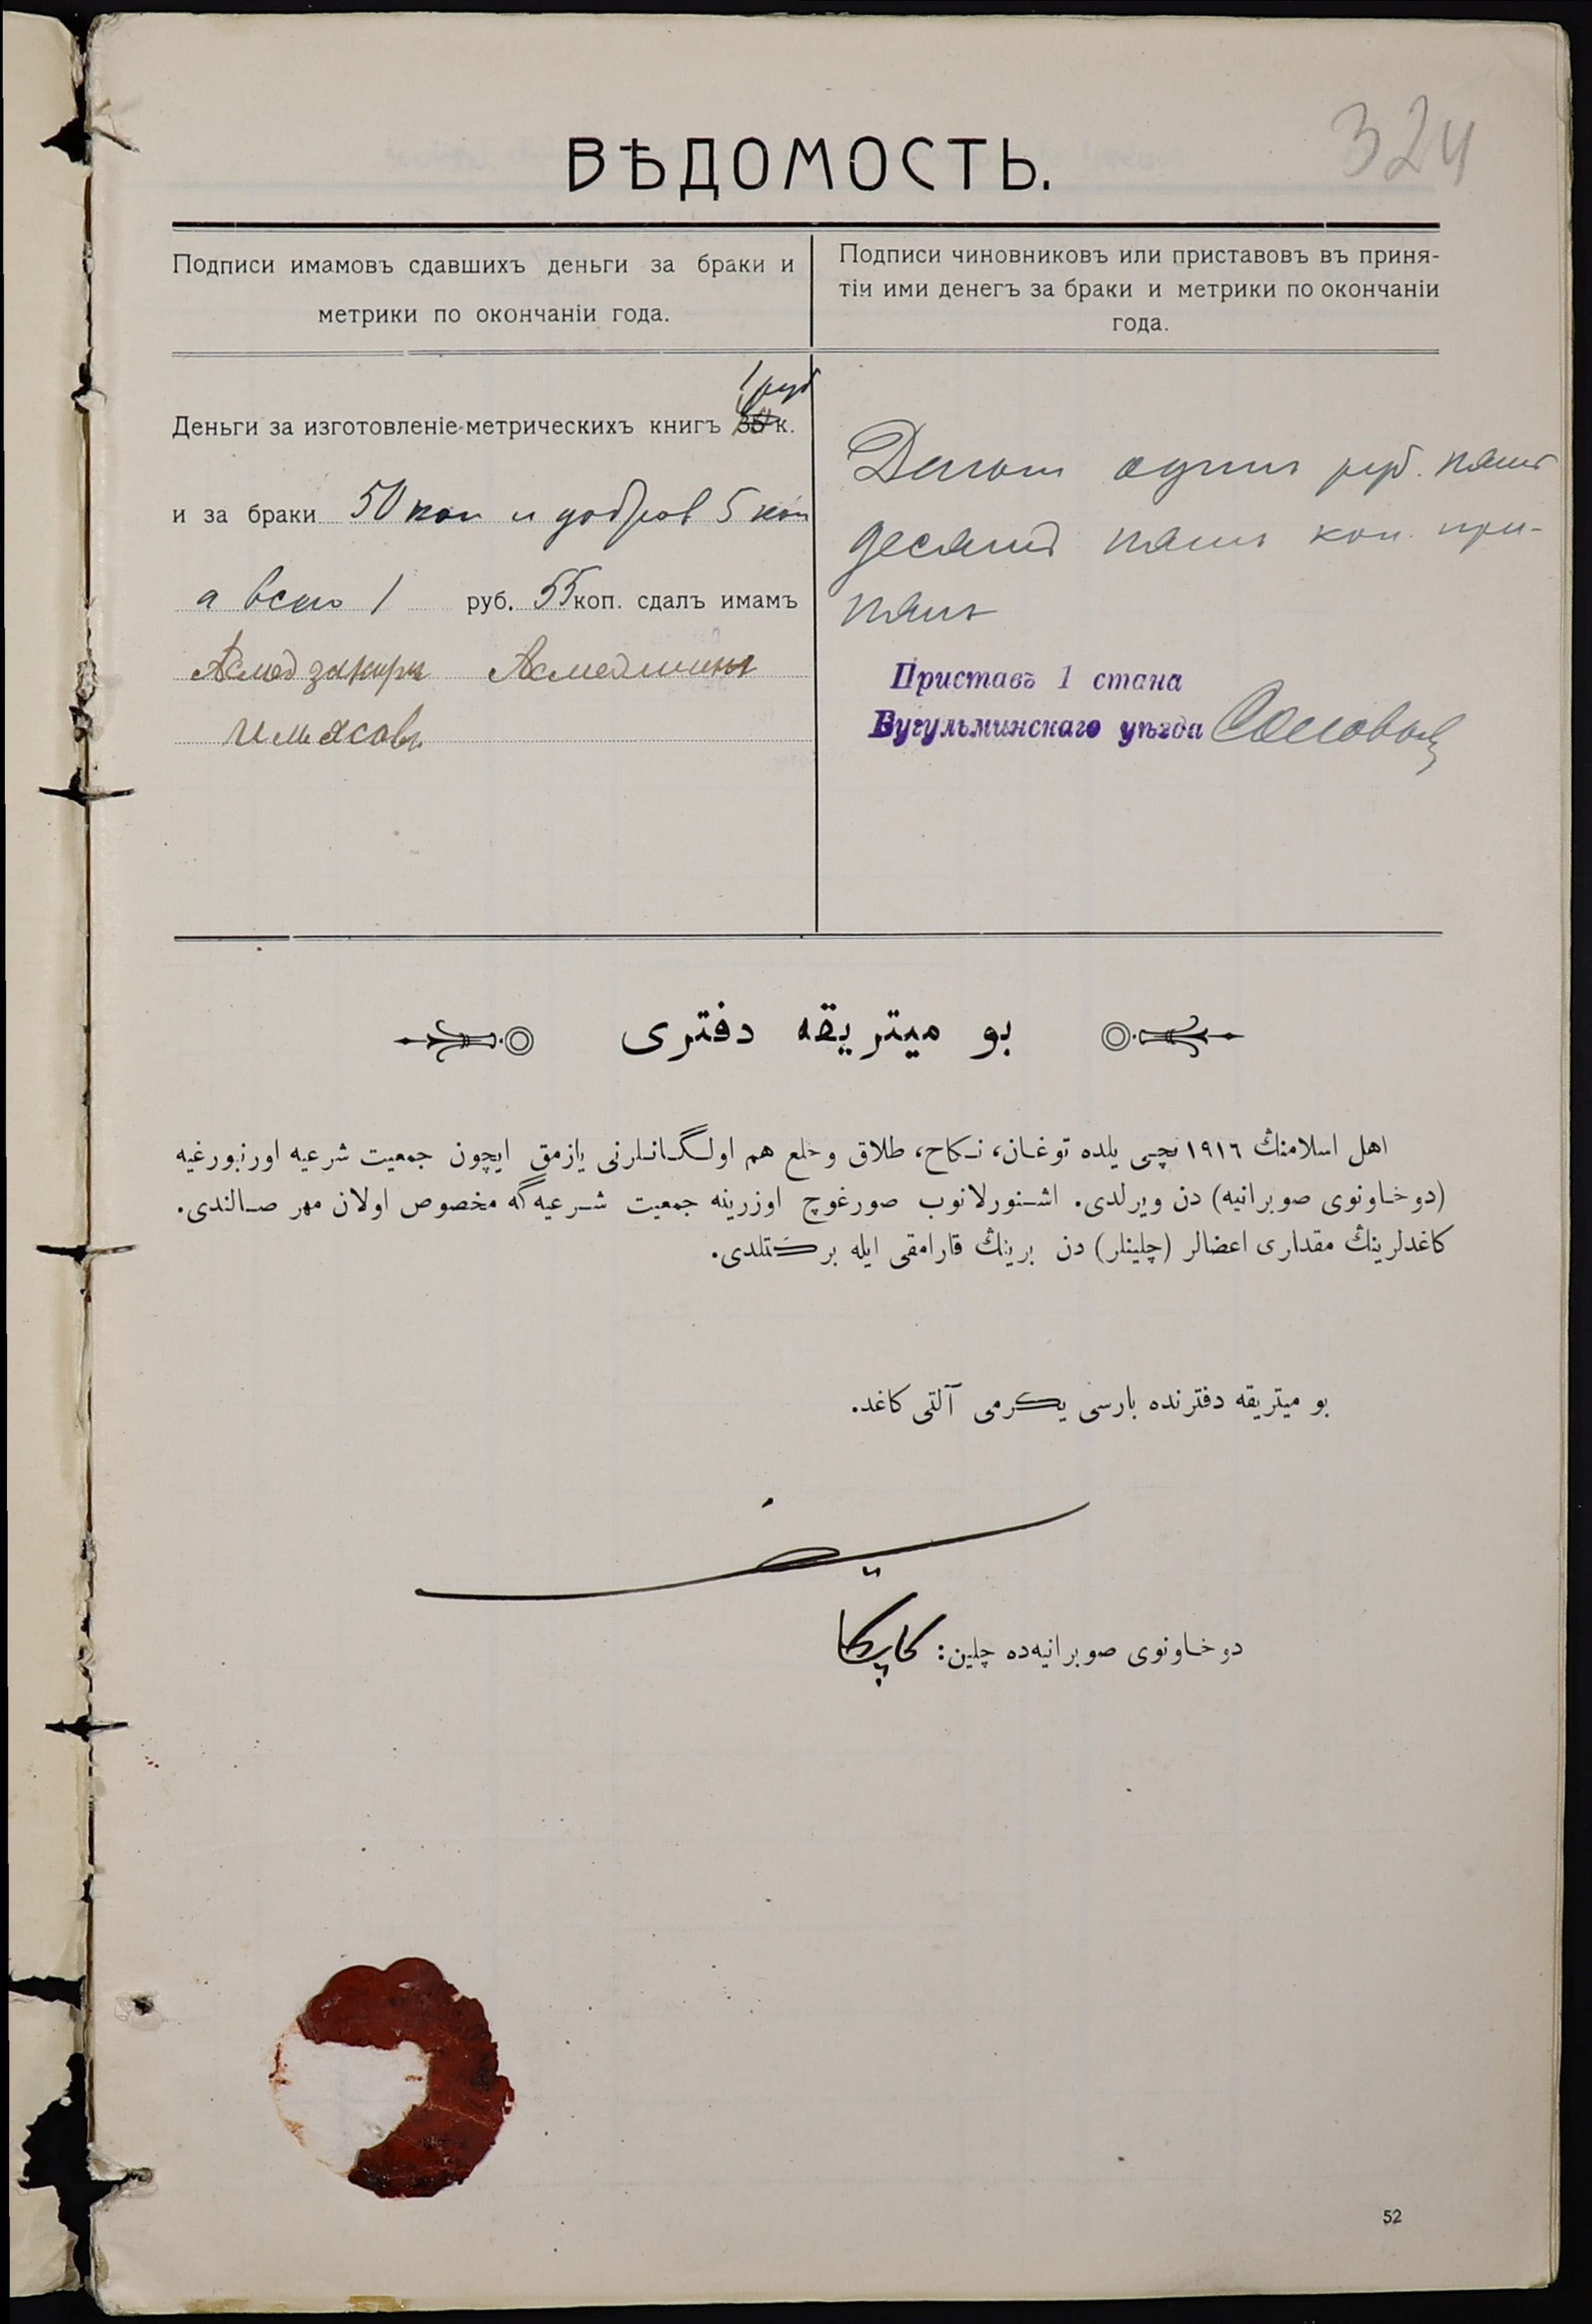 324
ВѢДОМОСТЬ.
Подписи имамовъ сдавшихъ деньги за браки и
метрики по окончаніи года.
Подписи чиновниковъ или приставовъ въ приня-
тіи ими денегъ за браки и метрики по окончаніи
года.
1 руб
Деньги за изготовленіе метрическихъ книгъ 35 к.
и за браки 50 коп и 5 коп
а всего 1 руб. 55 коп. сдалъ имамъ
Ахмедзакиръ
Денегъ одинъ руб. пять
десятъ пять коп. при-
нялъ
Приставъ 1 стана
Бугульминскаго уѣзда
بو ميتريقه دفترى
اهل اسلامنڭ ١٩١٦ نچى يلده توغان، نكاح، طلاق وخلع هم اولگانلرنى يازمق ايچون جمعيت شرعيه اورنبورغيه
(دوخاونوى صوبرانيه) دن ويرلدى. اشنورلانوب صورغوچ اوزرينه جمعيت شرعيه‌گه مخصوص اولان مهر صالندى.
كاغدلرينڭ مقدارى اعضالر (چلينلر) دن برينڭ قارامقى ايله بركتلدى.
بو ميتريقه دفترنده بارسى يكرمى آلتى كاغد.
دوخاونوى صوبرانيه‌ده چلين:
52